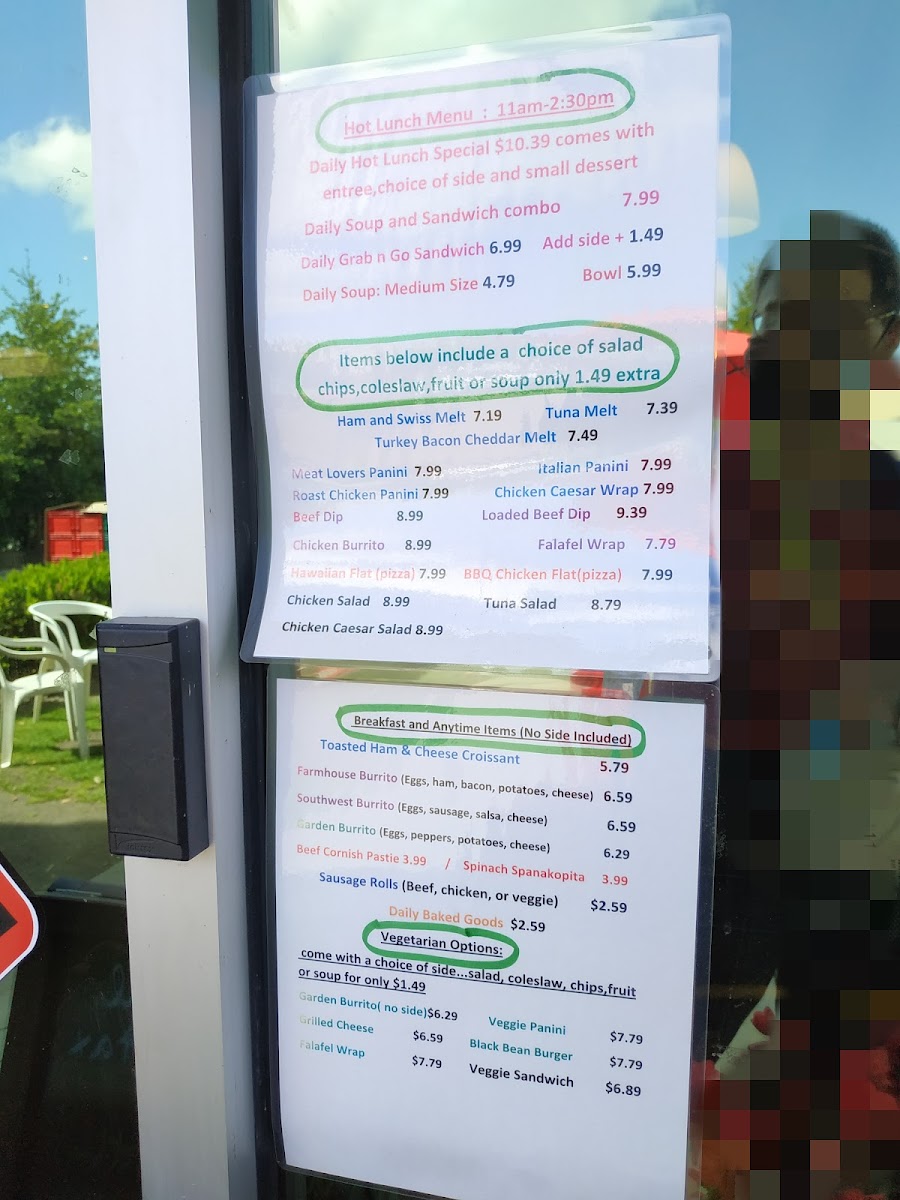 Hot Lunch Menu : 11am-2:30pm
Daily Hot Lunch Special $10.39 comes with
entree,choice of side and small dessert
Daily Soup and Sandwich combo 7.99
Daily Grab n Go Sandwich 6.99 Add side + 1.49
Daily Soup: Medium Size 4.79 Bowl 5.99
Items below include a choice of salad
chips,coleslaw,fruit or soup only 1.49 extra
Ham and Swiss Melt 7.19 Tuna Melt 7.39
Turkey Bacon Cheddar Melt 7.49
Meat Lovers Panini 7.99 Italian Panini 7.99
Roast Chicken Panini 7.99 Chicken Caesar Wrap 7.99
Beef Dip 8.99 Loaded Beef Dip 9.39
Chicken Burrito 8.99 Falafel Wrap 7.79
Hawaiian Flat (pizza) 7.99 BBQ Chicken Flat(pizza) 7.99
Chicken Salad 8.99 Tuna Salad 8.79
Chicken Caesar Salad 8.99
Breakfast and Anytime Items (No Side Included)
Toasted Ham & Cheese Croissant 5.79
Farmhouse Burrito (Eggs, ham, bacon, potatoes, cheese) 6.59
Southwest Burrito (Eggs, sausage, salsa, cheese) 6.59
Garden Burrito (Eggs, peppers, potatoes, cheese) 6.29
Beef Cornish Pastie 3.99 / Spinach Spanakopita 3.99
Sausage Rolls (Beef, chicken, or veggie) $2.59
Daily Baked Goods $2.59
Vegetarian Options:
come with a choice of side...salad, coleslaw, chips,fruit
or soup for only $1.49
Garden Burrito( no side)$6.29 Veggie Panini $7.79
Grilled Cheese $6.59 Black Bean Burger $7.79
Falafel Wrap $7.79 Veggie Sandwich $6.89